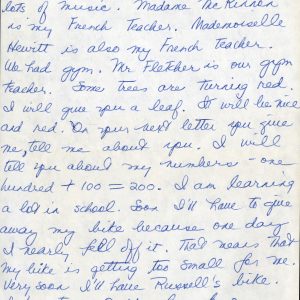 lots of music. Madame McKinnon
is my French Teacher. Mademoiselle
Hewitt is also my French Teacher.
We had gym. Mr Fletcher is our gym
teacher. Some trees are turning red.
I will give you a leaf. It will be nice
and red. On your next letter you give
me, tell me about you. I will
tell you about my numbers - one
hundred + 100 = 200. I am learning
a lot in school. Soon I'll have to give
away my bike because one day
I nearly fell off it. That means that
my bike is getting too small for me.
Very soon I'll have Russell's bike.